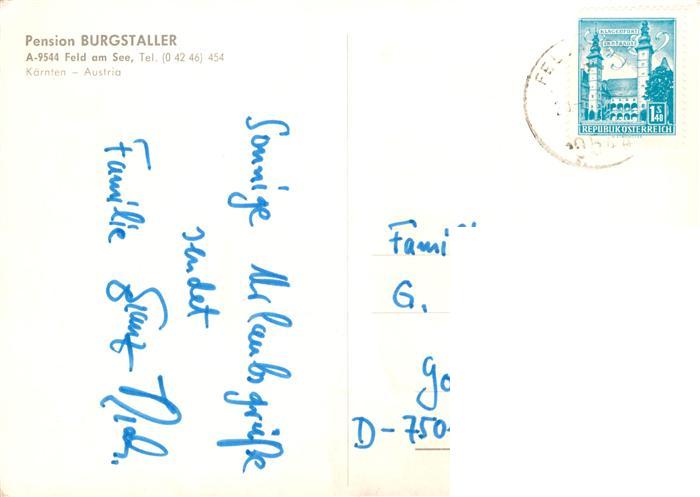 Pension BURGSTALLER
A-9544 Feld am See, Tel. (0 42 46) 454
Kärnten – Austria
Sonnige Urlaubsgrüße
sendet
Familie Franz
KLAGENFURT
LANDHAUS
1 S 40
REPUBLIK ÖSTERREICH
FEL
Fami
G.
D-750